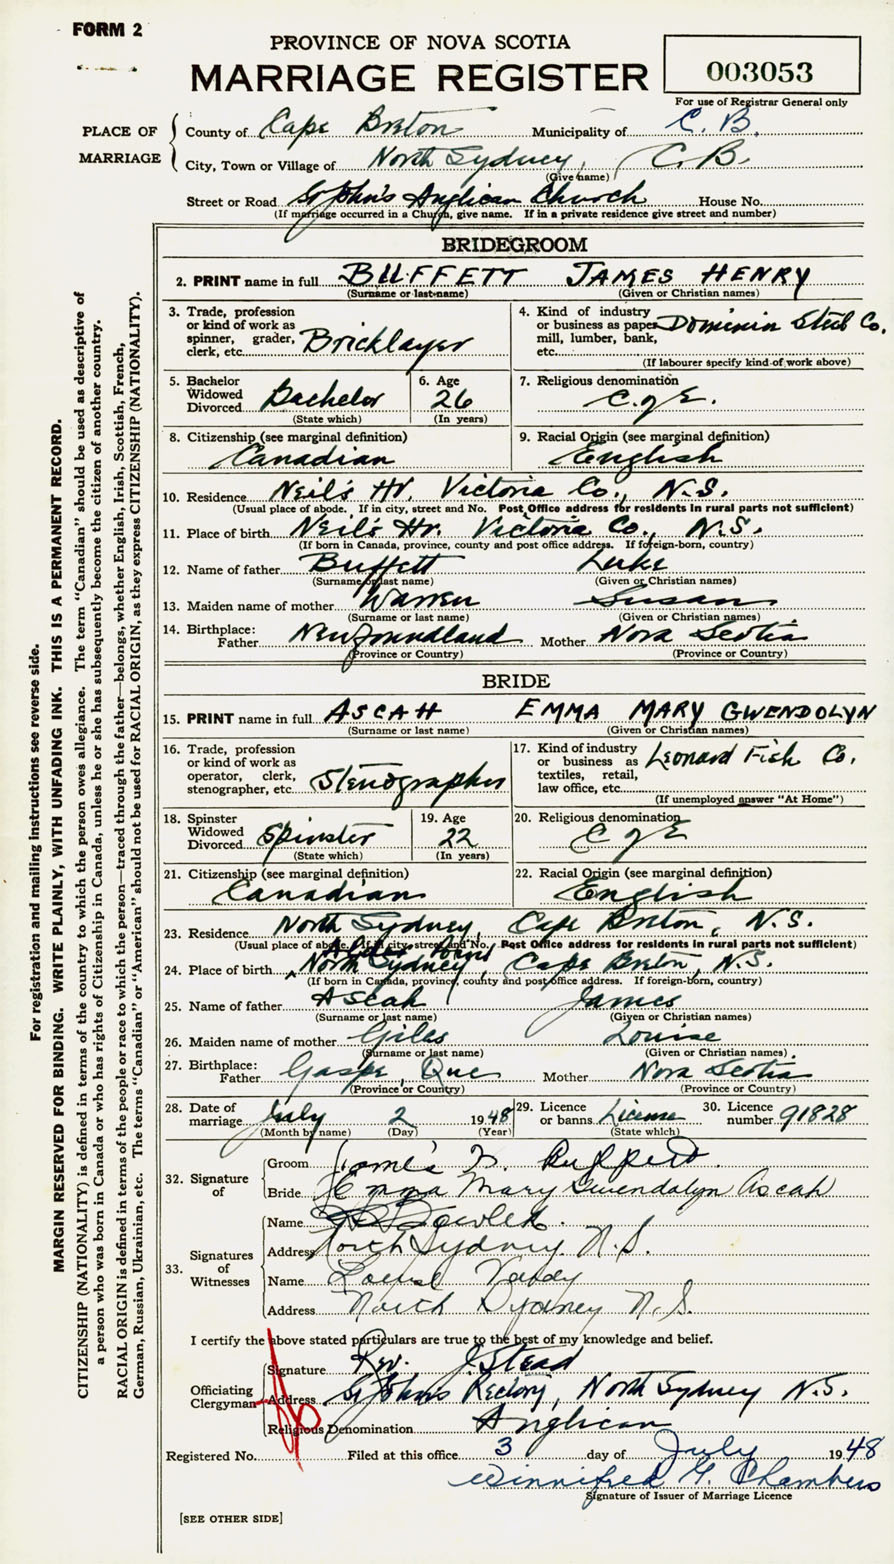 FORM 2
PROVINCE OF NOVA SCOTIA
MARRIAGE REGISTER
003053
For use of Registrar General only
PLACE OF MARRIAGE
County of Cape Breton Municipality of C. B.
City, Town or Village of North Sydney, C. B.
(Give name)
Street or Road St John's Anglican Church House No.
(If marriage occurred in a Church, give name. If in a private residence give street and number)
BRIDEGROOM
2. PRINT name in full BUFFETT JAMES HENRY
(Surname or last name) (Given or Christian names)
3. Trade, profession or kind of work as spinner, grader, clerk, etc. Bricklayer
4. Kind of industry or business as paper mill, lumber, bank, etc. Dominion Steel Co.
(If labourer specify kind of work above)
5. Bachelor Widowed Divorced Bachelor
(State which)
6. Age 26
(In years)
7. Religious denomination C. of E.
8. Citizenship (see marginal definition) Canadian
9. Racial Origin (see marginal definition) English
10. Residence Neil's Hr. Victoria Co., N.S.
(Usual place of abode. If in city, street and No. Post Office address for residents in rural parts not sufficient)
11. Place of birth Neil's Hr. Victoria Co., N.S.
(If born in Canada, province, county and post office address. If foreign-born, country)
12. Name of father Buffett Luke
(Surname or last name) (Given or Christian names)
13. Maiden name of mother Warren Susan
(Surname or last name) (Given or Christian names)
14. Birthplace: Father Newfoundland Mother Nova Scotia
(Province or Country) (Province or Country)
BRIDE
15. PRINT name in full ASCAH EMMA MARY GWENDOLYN
(Surname or last name) (Given or Christian names)
16. Trade, profession or kind of work as operator, clerk, stenographer, etc. Stenographer
17. Kind of industry or business as textiles, retail, law office, etc. Leonard Fish Co.
(If unemployed answer "At Home")
18. Spinster Widowed Divorced Spinster
(State which)
19. Age 22
(In years)
20. Religious denomination C of E
21. Citizenship (see marginal definition) Canadian
22. Racial Origin (see marginal definition) English
23. Residence North Sydney, Cape Breton, N.S.
(Usual place of abode. If in city, street and No. Post Office address for residents in rural parts not sufficient)
24. Place of birth North Sydney, Cape Breton, N.S.
(If born in Canada, province, county and post office address. If foreign-born, country)
25. Name of father Ascah James
(Surname or last name) (Given or Christian names)
26. Maiden name of mother Giles Louise
(Surname or last name) (Given or Christian names)
27. Birthplace: Father Gaspe, Que Mother Nova Scotia
(Province or Country) (Province or Country)
28. Date of marriage July 2 1948
(Month by name) (Day) (Year)
29. Licence or banns License
(State which)
30. Licence number 91828
32. Signature of
Groom James H. Buffett.
Bride Emma Mary Gwendolyn Ascah
33. Signatures of Witnesses
Name
Address North Sydney N.S.
Name Louise
Address North Sydney N.S.
I certify the above stated particulars are true to the best of my knowledge and belief.
Officiating Clergyman
Signature Rev. J. Stead
Address St Johns Rectory, North Sydney N.S.
Religious Denomination Anglican
Registered No. Filed at this office 3 day of July 1948
Winnifred G. Chambers
Signature of Issuer of Marriage Licence
[SEE OTHER SIDE]
For registration and mailing instructions see reverse side.
MARGIN RESERVED FOR BINDING. WRITE PLAINLY, WITH UNFADING INK. THIS IS A PERMANENT RECORD.
CITIZENSHIP (NATIONALITY) is defined in terms of the country to which the person owes allegiance. The term "Canadian" should be used as descriptive of
a person who was born in Canada or who has rights of Citizenship in Canada, unless he or she has subsequently become the citizen of another country.
RACIAL ORIGIN is defined in terms of the people or race to which the person—traced through the father—belongs, whether English, Irish, Scottish, French,
German, Russian, Ukrainian, etc. The terms "Canadian" or "American" should not be used for RACIAL ORIGIN, as they express CITIZENSHIP (NATIONALITY).